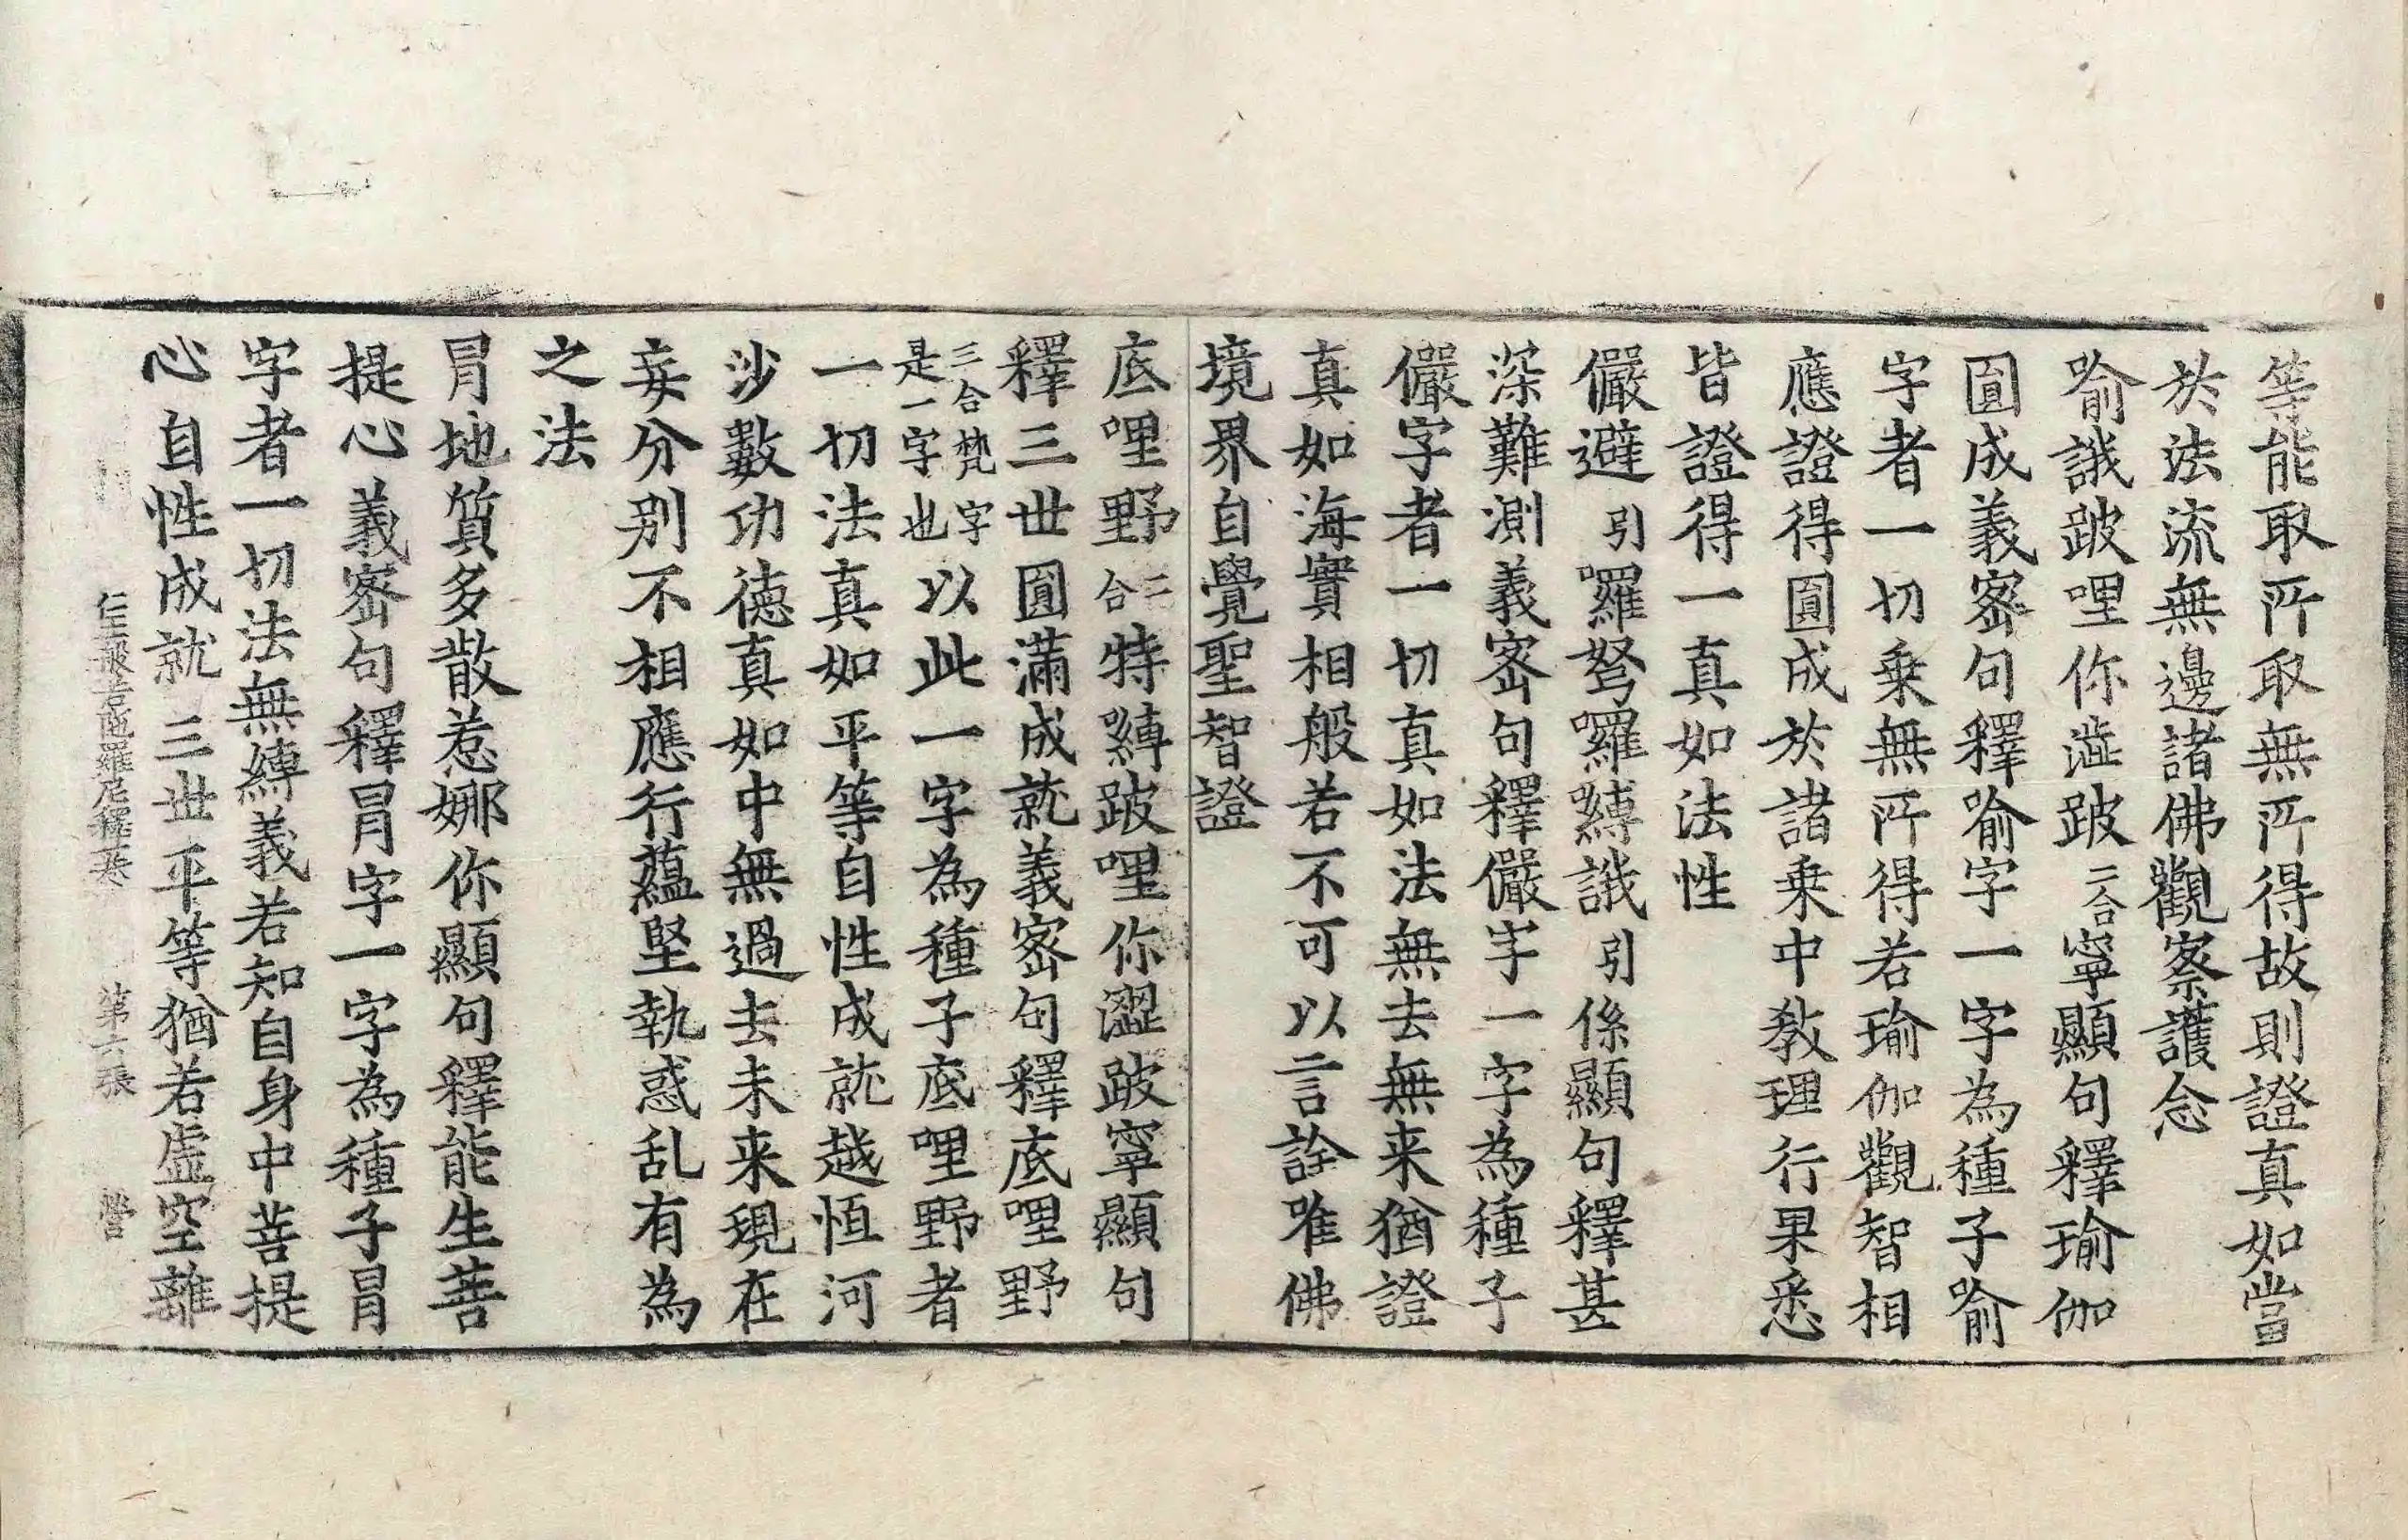 等能取所取無所得故則證真如當
於法流無邊諸佛觀察護念
喻誐跛哩你澁跛二合寧顯句釋瑜伽
圓成義密句釋喻字一字為種子喻
字者一切乗無所得若瑜伽觀智相
應證得圓成於諸乗中教理行果悉
皆證得一真如法性
儼避引囉弩囉嚩誐引係顯句釋甚
深難測義密句釋儼字一字為種子
儼字者一切真如法無去無来猶證
真如海實相般若不可以言詮唯佛
境界自覺聖智證
底哩野二合特嚩跛哩你澀跛寧顯句
釋三世圓滿成就義密句釋底哩野
三合梵字是一字也以此一字為種子底哩野者
一切法真如平等自性成就越恒河
沙數功德真如中無過去未来現在
妄分別不相應行蘊堅執惑乱有為
之法
冐地質多散惹娜你顯句釋能生菩
提心義密句釋冐字一字為種子冐
字者一切法無縛義若知自身中菩提
心自性成就三世平等猶若虛空離
仁王般若陁羅尼釋一卷 第六張 營